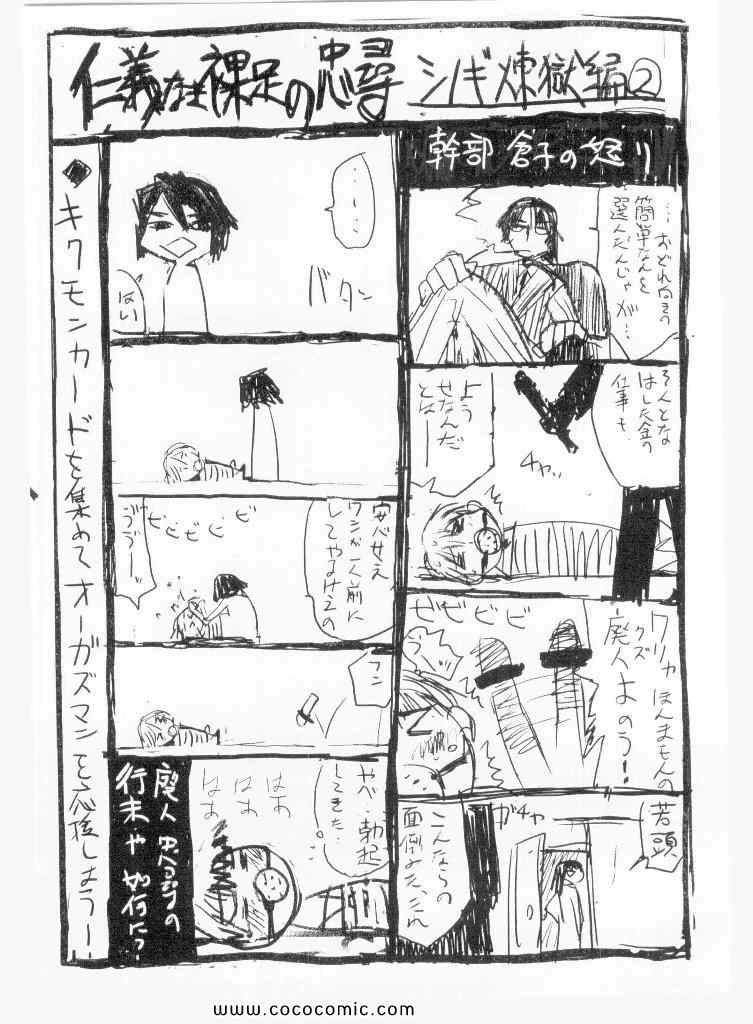 仁義なき裸足の忠尋 シノギ煉獄編②
幹部 倉子の怒り
…おどれ向きの
簡単なんを
選んだんじゃが…
そんとな
はした金の
仕事も
ようせなんだ
とは――
チャッ
ワリャ ほんまもんの
廃人よのう!
クズ
ビビビビ
若頭
ガチャ
こんならの
面倒みたれ
……
バタン
はい
安心せえ
ワシが一人前に
してやるけえの
ビビビビ ビ
ヴヴー
フン
ヤベ、勃起
してきた…
はお
はお
はお
廃人 忠尋の
行末や如何に?
◆キクモンカードを集めてオーガズマンを応援しよう!
www.cococomic.com